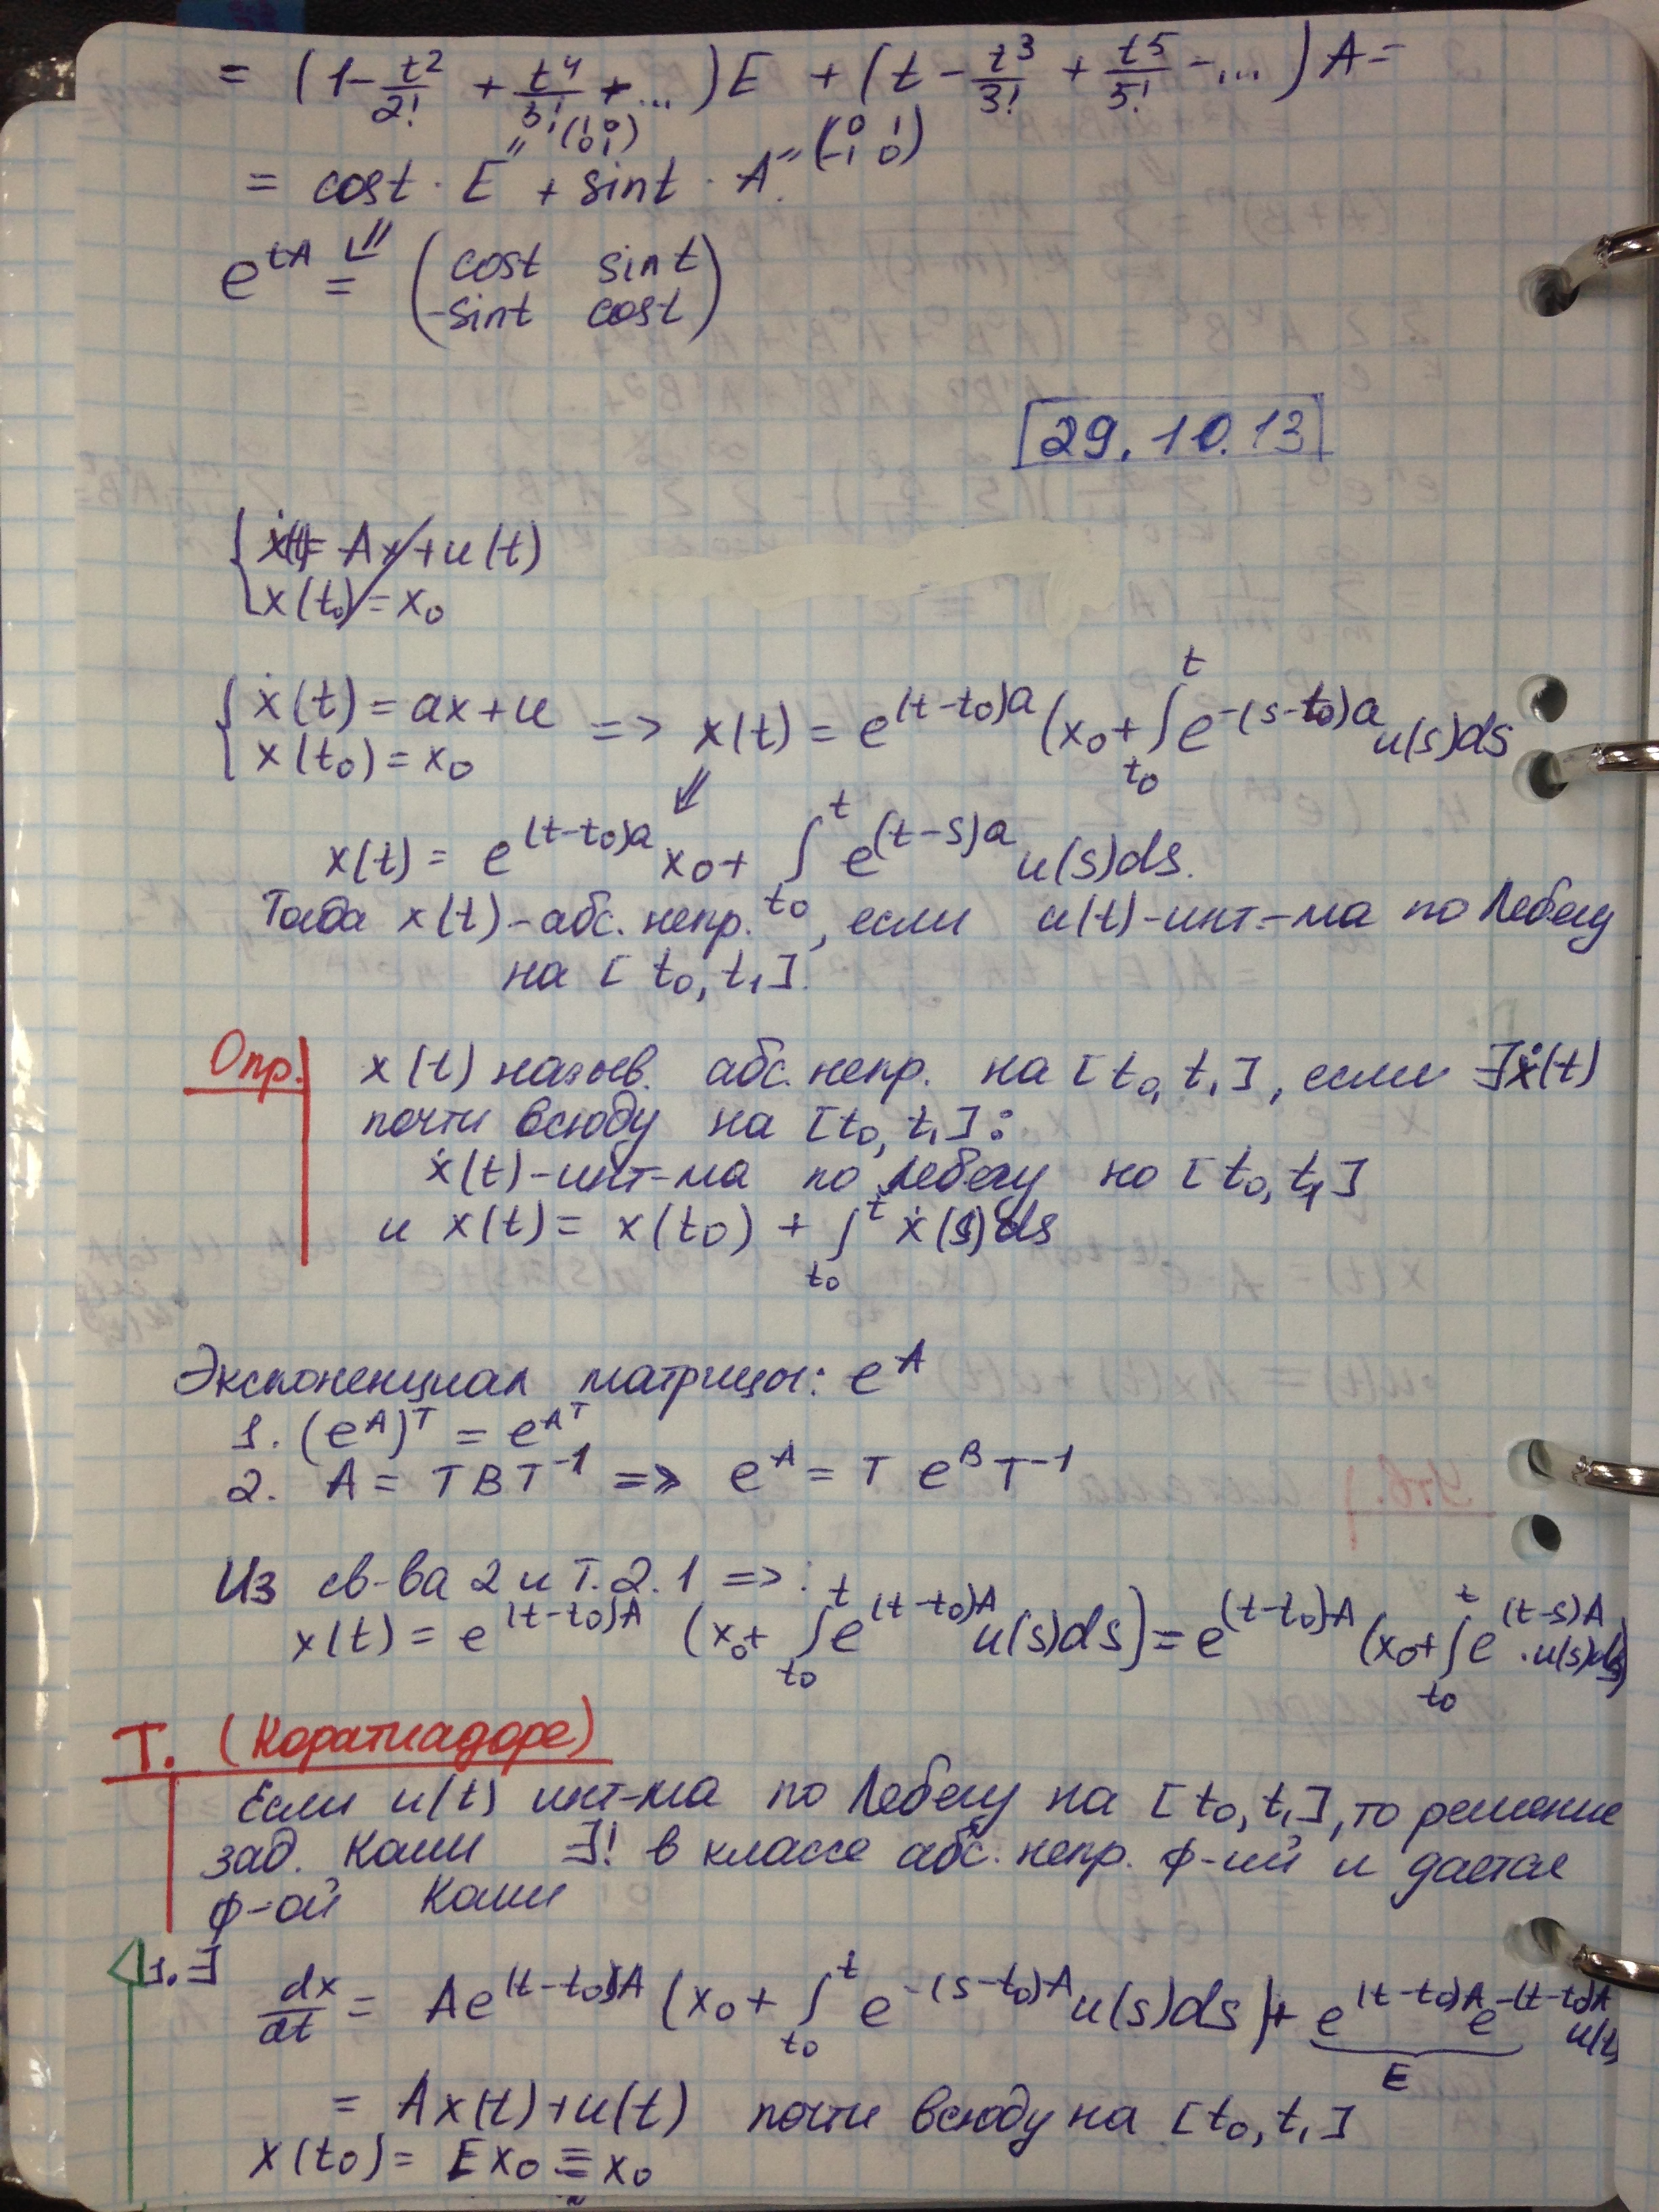 = (1 - t²/2! + t⁴/3! + ...) E + (t - t³/3! + t⁵/5! - ...) A =
" (1 0 / 0 1) " (0 1 / -1 0)
= cost · E + sint · A.
e^{tA} ⇓ = (cost sint / -sint cost)
29.10.13
{ ẋ(t) = Ax + u(t)
x(t₀) = x₀
{ ẋ(t) = ax + u => x(t) = e^{(t-t₀)a} (x₀ + ∫_{t₀}^{t} e^{-(s-t₀)a} u(s)ds
x(t₀) = x₀
⇓
x(t) = e^{(t-t₀)a} x₀ + ∫_{t₀}^{t} e^{(t-s)a} u(s)ds.
Тогда x(t) - абс. непр., если u(t) - инт-ма по Лебегу
на [t₀, t₁].
Опр. x(t) назыв. абс. непр. на [t₀, t₁], если ∃ẋ(t)
почти всюду на [t₀, t₁]:
ẋ(t) - инт-ма по Лебегу на [t₀, t₁]
и x(t) = x(t₀) + ∫_{t₀}^{t} ẋ(s)ds
Экспоненциал матрицы: e^A
1. (e^A)^T = e^{A^T}
2. A = TBT⁻¹ => e^A = T e^B T⁻¹
Из св-ва 2 и Т.2.1 => :
x(t) = e^{(t-t₀)A} (x₀ + ∫_{t₀}^{t} e^{(t-t₀)A} u(s)ds) = e^{(t-t₀)A} (x₀ + ∫_{t₀}^{t} e^{(t-s)A} · u(s)ds)
Т. (Каратиадоре)
Если u(t) инт-ма по Лебегу на [t₀, t₁], то решение
зад. Коши ∃! в классе абс. непр. ф-ий и дается
ф-ой Коши
1. ∃
dx/dt = Ae^{(t-t₀)A} (x₀ + ∫_{t₀}^{t} e^{-(s-t₀)A} u(s)ds) + e^{(t-t₀)A} e^{-(t-t₀)A} u(t)
E
= Ax(t) + u(t) почти всюду на [t₀, t₁]
x(t₀) = Ex₀ ≡ x₀